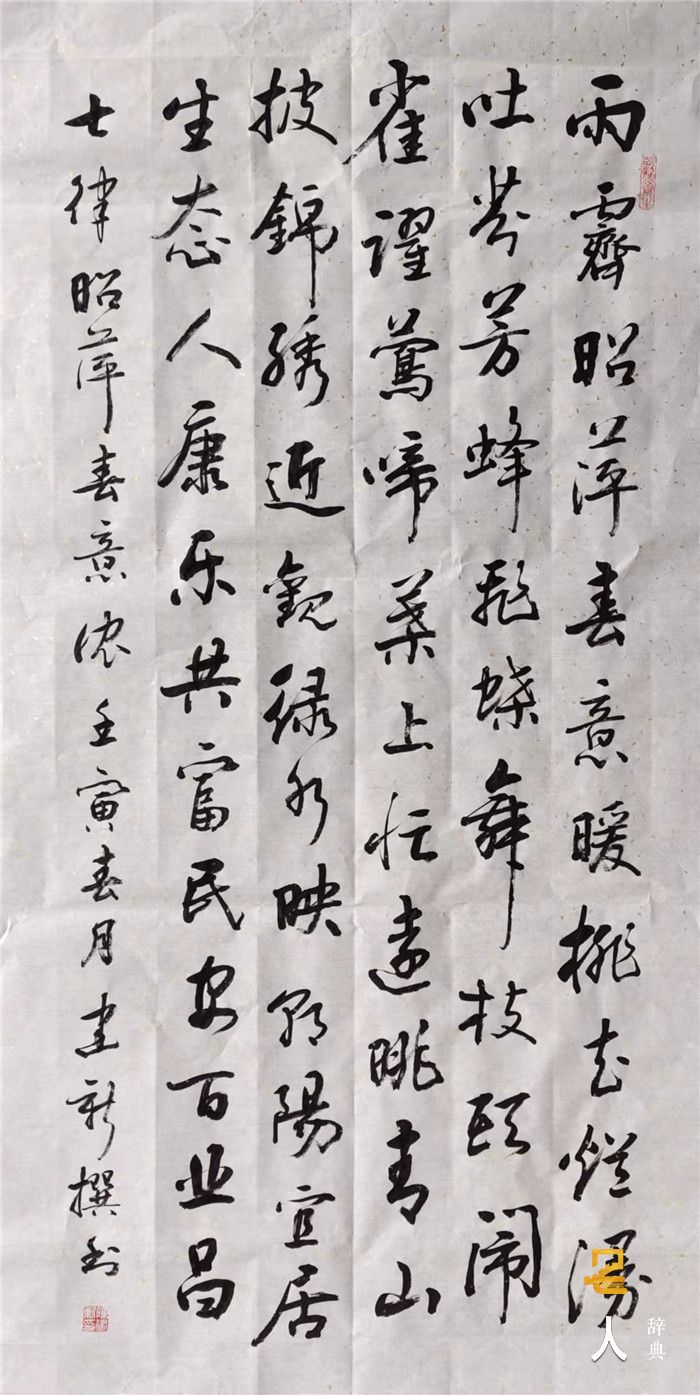 雨霽昭萍春意暖桃花爛漫
吐芬芳蜂飛蝶舞枝頭闹
雀躍鶯啼葉上忙遠眺青山
披錦綉近觀緑水映朝陽宜居
生态人康乐共富民安百业昌
七律昭萍春意浓壬寅春月建新撰书
名人辞典